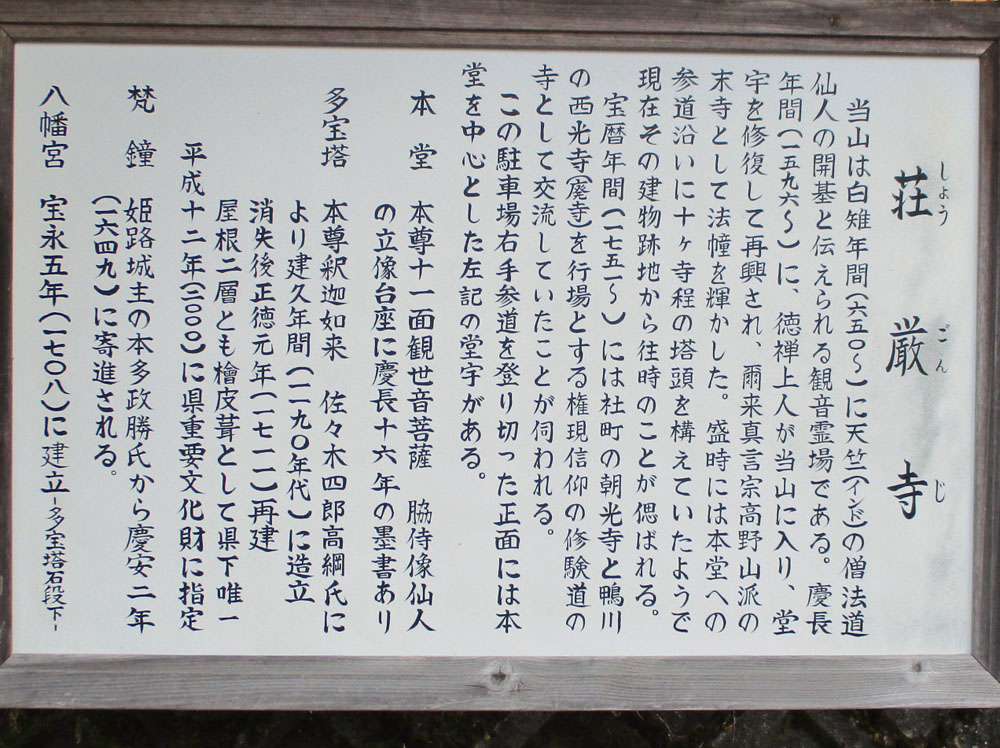 荘厳寺
しょうごんじ
当山は白雉年間(六五〇〜)に天竺(インド)の僧法道
仙人の開基と伝えられる観音霊場である。慶長
年間(一五九六〜)に、徳禅上人が当山に入り、堂
宇を修復して再興され、爾来真言宗高野山派の
末寺として法幢を輝かした。盛時には本堂への
参道沿いに十ヶ寺程の塔頭を構えていたようで
現在その建物跡地から往時のことが偲ばれる。
宝暦年間(一七五一〜)には社町の朝光寺と鴨川
の西光寺(廃寺)を行場とする権現信仰の修験道の
寺として交流していたことが伺われる。
この駐車場右手参道を登り切った正面には本
堂を中心とした左記の堂宇がある。
本堂 本尊十一面観世音菩薩 脇侍像仙人
の立像台座に慶長十六年の墨書あり
多宝塔 本尊釈迦如来 佐々木四郎高綱氏に
より建久年間(一一九〇年代)に造立
消失後正徳元年(一七一一)再建
屋根二層とも檜皮葺として県下唯一
平成十二年(二〇〇〇)に県重要文化財に指定
梵鐘 姫路城主の本多政勝氏から慶安二年
(一六四九)に寄進される。
八幡宮 宝永五年(一七〇八)に建立-多宝塔石段下-